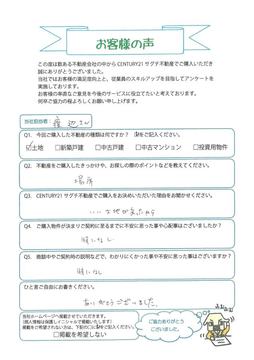 お客様の声
この度は数ある不動産会社の中からCENTURY21サグチ不動産でご購入いただき
誠にありがとうございました。
当社ではお客様の満足度向上と、従業員のスキルアップを目指してアンケートを
実施しております。
お客様の率直なご意見を今後のサービスに役立てたいと考えております。
何卒ご協力の程よろしくお願い申し上げます。
当社担当者： さん
Q1. 今回ご購入した不動産の種類は何ですか？ をご記入ください。
☑土地 □新築戸建 □中古戸建 □中古マンション □投資用物件
Q2. 不動産をご購入したきっかけや、お探しの際のポイントなどを教えてください。
場所
Q3. CENTURY21サグチ不動産でご購入をお決めいただいた理由をお聞かせください。
いい土地があったから
Q4. ご購入物件が決まりご契約に至るまでに不安に思った事や心配事はございましたか？
特になし
Q5. 商談中やご契約時の説明などで、わかりにくかった事や不安に思った事はございますか？
特になし
ひと言ご自由にお書きください。
ありがとうございました。
当社ホームページへ掲載させていただきます。
(個人情報は保護しイニシャルで掲載いたします)
掲載をご希望されない方は、下記の□に をご記入ください。
□掲載を希望しない
ご協力ありがとう
ございました。